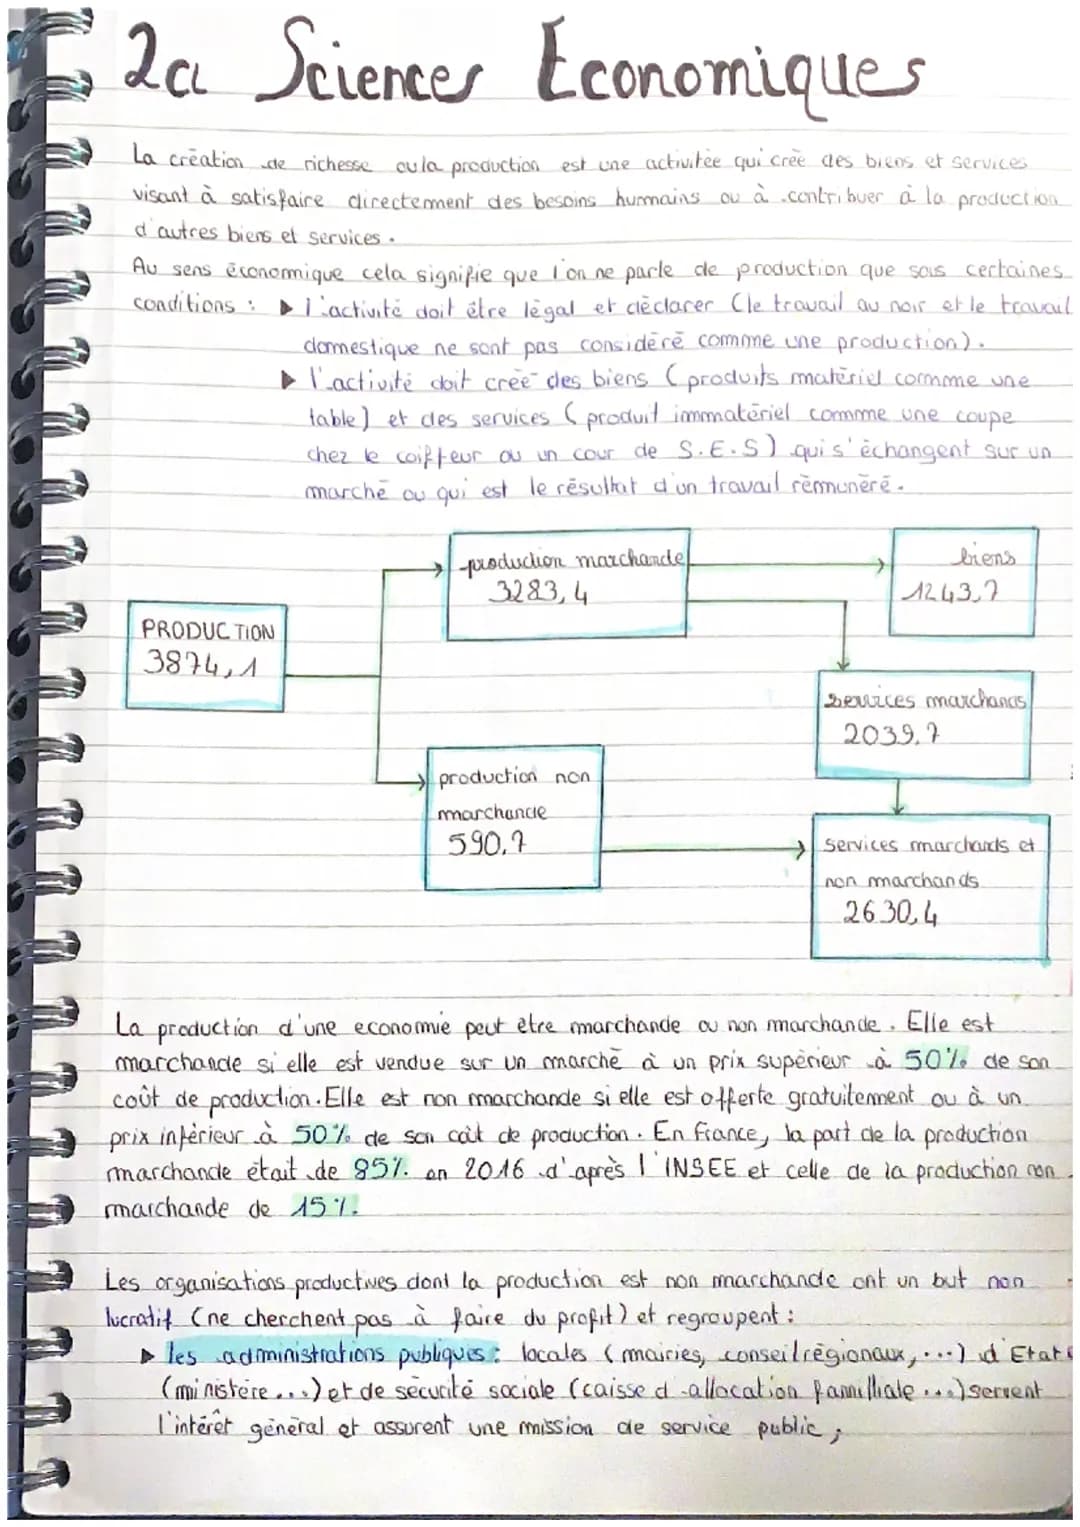 2a Sciences Economiques
La création de richesse ou la production est une activitée qui creè des biens et services
visant à satisfaire directement des besoins humains ou à contribuer à la production
d'autres biens et services.
Au sens économique cela signifie que l'on ne parle de production que sous certaines
conditions : ▶ l'activité doit être légal et déclarer (le travail au noir et le travail
domestique ne sont pas considéré comme une production).
▶ l'activité doit creé des biens (produits matériel comme une
table) et des services (produit immatériel comme une coupe
chez le coiffeur ou un cour de S.E.S) qui s'échangent sur un
marché ou qui est le résultat d'un travail rémunéré.
production marchande
3283,4
biens
1243,7
PRODUCTION
3874,1
services marchands
2039,7
production non
marchande
590,7
services marchands et
non marchands
2630,4
La production d'une economie peut être marchande ou non marchande. Elle est
marchande si elle est vendue sur un marché à un prix supérieur à 50% de son
coût de production. Elle est non marchande si elle est offerte gratuitement ou à un
prix inférieur à 50% de son coût de production. En France, la part de la production
marchande était de 85% en 2016 d'après l'INSEE et celle de la production non
marchande de 15%.
Les organisations productives dont la production est non marchande ont un but non
lucratif (ne cherchent pas à faire du profit) et regroupent :
▶ les administrations publiques : locales (mairies, conseil régionaux, ...) d'Etat
(ministère...) et de sécurité sociale (caisse d'allocation familliale ...) servent
l'intérêt général et assurent une mission de service public ;